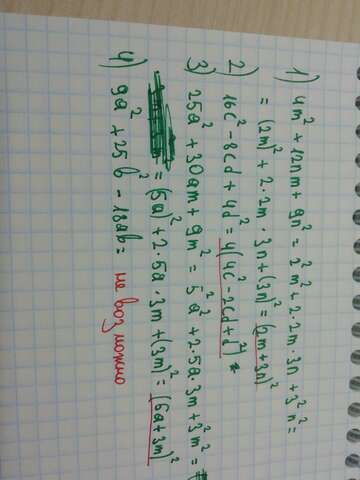 1) 4m²+12nm+9n²=2²m²+2·2m·3n+3²n²=
=(2m)²+2·2m·3n+(3n)²=(2m+3n)²
2) 16c²-8cd+4d²=4(4c²-2cd+d²)
3) 25a²+30am+9m²=5²a²+2·5a·3m+3²m²=
=(5a)²+2·5a·3m+(3m)²=(6a+3m)²
4) 9a²+25b²-18ab= не возможно